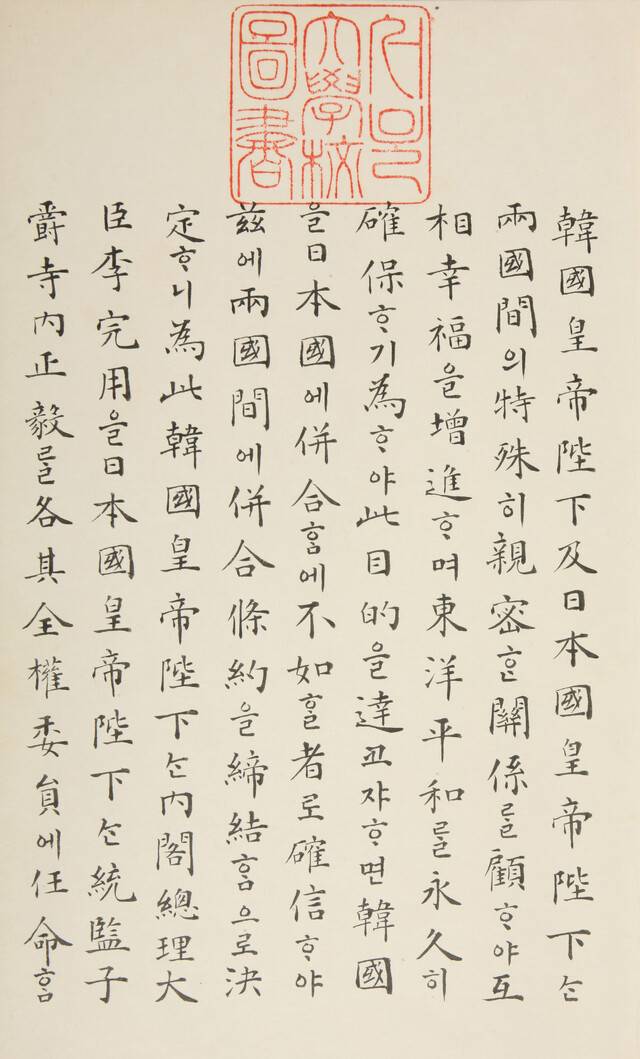 서울
大學校
圖書
韓國皇帝陛下及日本國皇帝陛下ᄂᆞᆫ
兩國間의特殊히親密ᄒᆞᆫ關係ᄅᆞᆯ顧ᄒᆞ야互
相幸福을增進ᄒᆞ며東洋平和ᄅᆞᆯ永久히
確保ᄒᆞ기為ᄒᆞ야此目的을達코쟈ᄒᆞ면韓國
을日本國에併合ᄒᆞᆷ에不如ᄒᆞᆯ者로確信ᄒᆞ야
玆에兩國間에併合條約을締結ᄒᆞᆷ으로決
定ᄒᆞ니為此韓國皇帝陛下ᄂᆞᆫ內閣總理大
臣李完用을日本國皇帝陛下ᄂᆞᆫ統監子
爵寺內正毅ᄅᆞᆯ各其全權委員에任命ᄒᆞᆷ